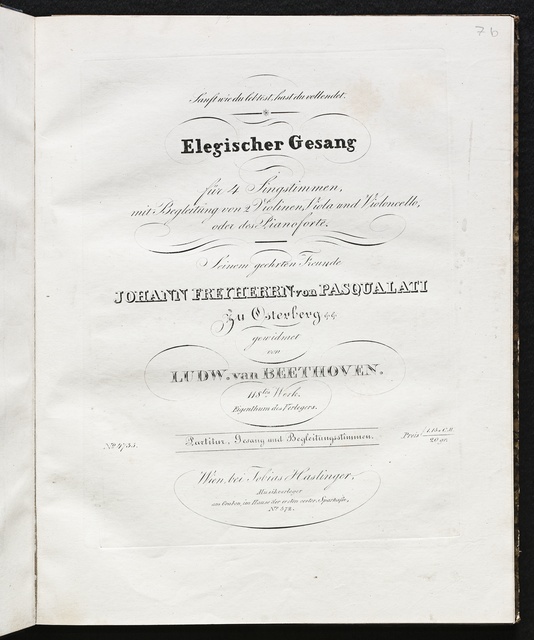 7b
Sanft wie du lebtest, hast du vollendet.
Elegischer Gesang
für 4 Singstimmen,
mit Begleitung von 2 Violinen, Viola und Violoncello,
oder des Pianoforte.
Seinem geehrten Freunde
JOHANN FREYHERRN von PASQUALATI
Zu Osterberg
gewidmet
von
LUDW. van BEETHOVEN.
118tes Werk.
Eigenthum des Verlegers.
Partitur, Gesang und Begleitungsstimmen.
Preis
20 gr.
Wien, bei Tobias Haslinger,
Musikverleger
am Graben, im Hause der ersten oester. Sparkasse,
No. 572.